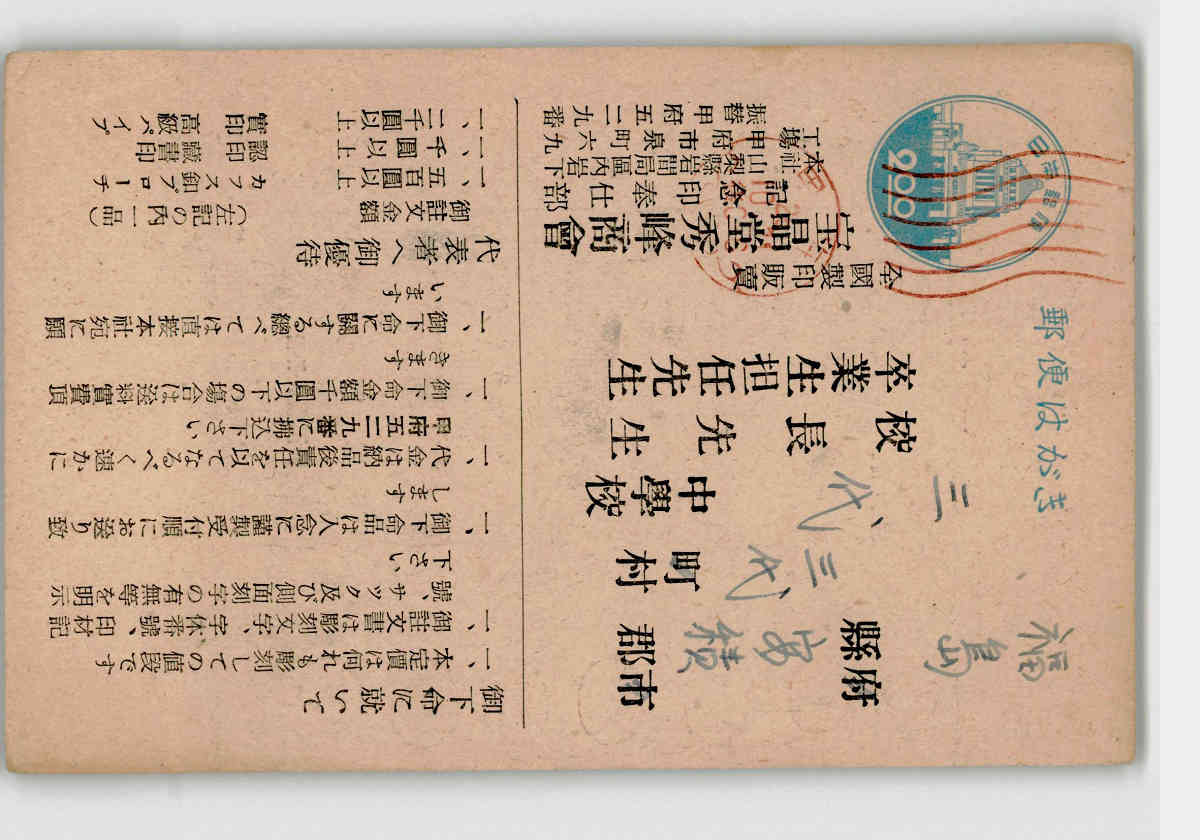 郵便はがき
日本郵便
200
福島
縣府
安積
郡市
三代
町村
三代
中學校
校長先生
卒業生担任先生
全國製印販賣
宝晶堂秀峰商會
記念印奉仕部
本社 山梨縣岩間局區內岩下
工場 甲府市泉町六九
振替甲府五二九番
御下命に就いて
一、本定價は何れも彫刻しての値段です
一、御註文書は彫刻文字、字休番號、印材記
號、サック及び側面刻字の有無等を明示
下さい
一、御下命品は入念に謹製受付順にお送り致
します
一、代金は納品後責任を以てなるべく速かに
甲府五二九番に拂込下さい
一、御下命金額千圓以下の場合は送料實費頂
きます
一、御下命に關する總べては直接本社宛に願
います
代表者へ御優待
御註文金額 (左記の内一品)
一、五百圓以上 カフス釦ブローチ
一、千圓以上 認印 藏書印
一、二千圓以上 實印 高級パイプ